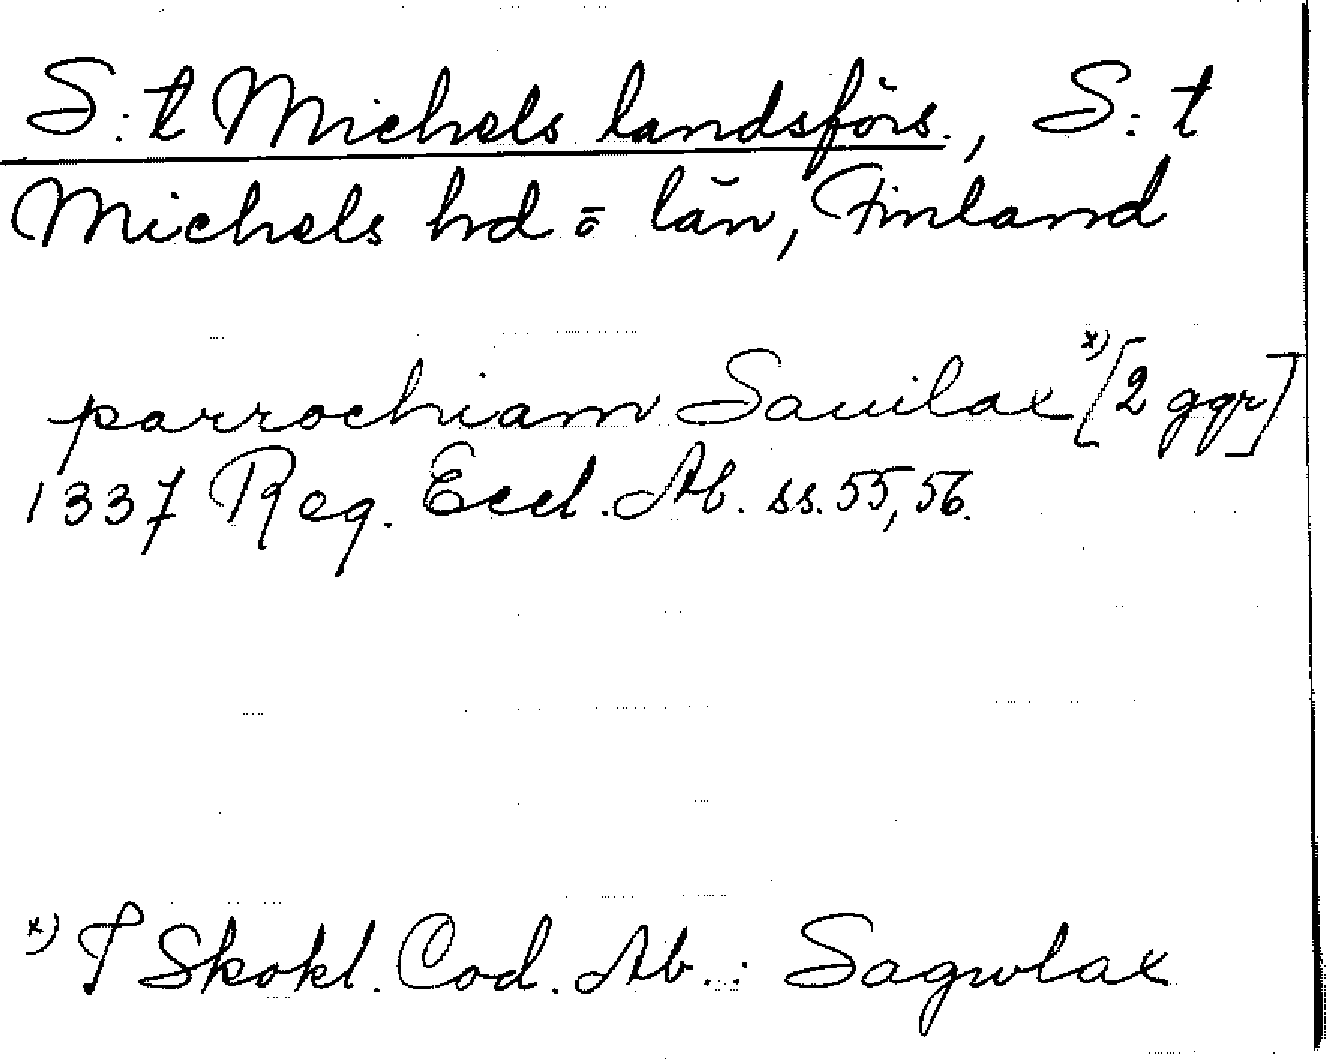 S:t Michels landsförs., S:t
Michels hd o län, Finland
parrochiam Sauilax x) [2 ggr]
1337 Reg. Eccl. Ab. ss. 55, 56.
x) I Skokl. Cod. Ab.: Sagwlax